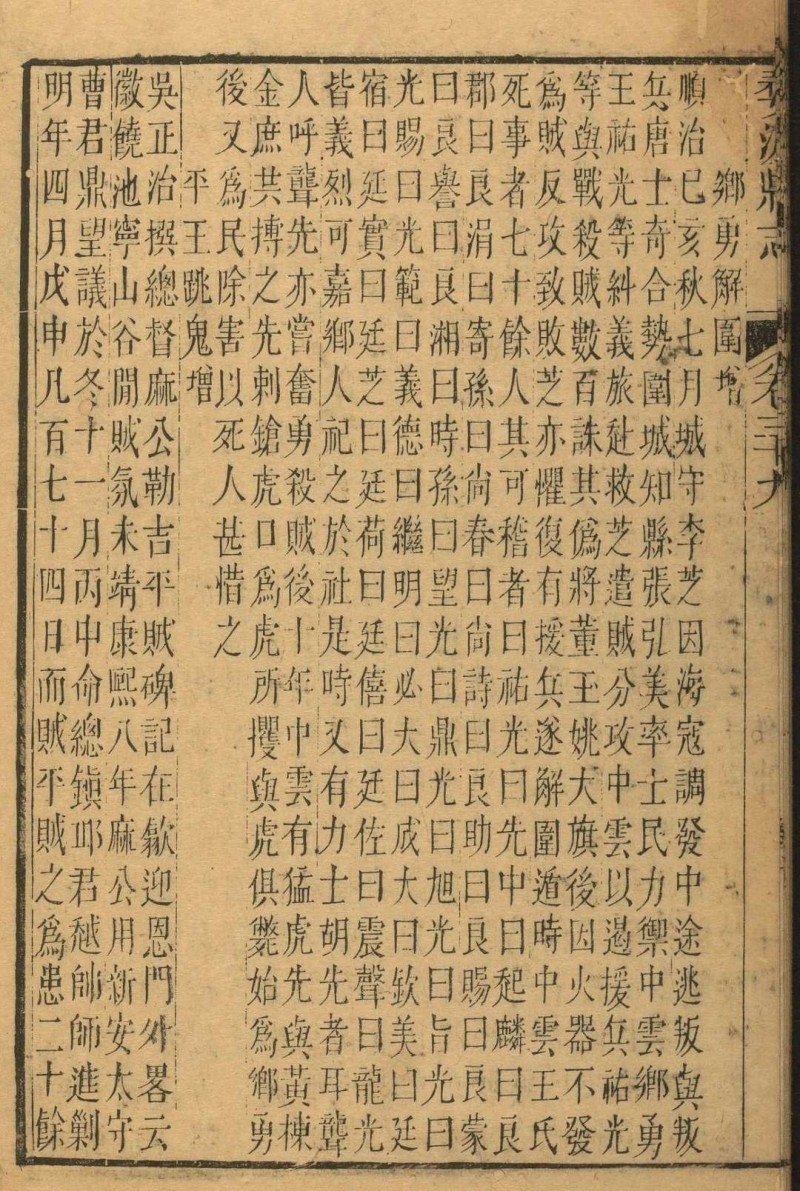 鄉勇解圍增
順治己亥秋七月城守李芝因海寇調發中途逃叛與叛
兵唐士奇合勢圍城知縣張弘美率士民力禦中雲鄉勇
王祐光等糾義旅赴救芝遣賊分攻中雲以遏援兵祐光
等與戰殺賊數百誅其偽將董玉姚大旗後因火器不發
為賊反攻致敗芝亦懼復有援兵遂解圍遁時中雲王氏
死事者七十餘人其可稽者曰祐光曰先中曰起麟曰良
郡曰良涓曰寄孫曰尚春曰尚詩曰良助曰良賜曰良蒙
曰良譽曰良湘曰時孫曰望光曰鼎光曰旭光曰旨光曰
光賜曰光範曰義德曰繼明曰必大曰成大曰欽美曰廷
宿曰廷實曰廷芝曰廷荷曰廷僖曰廷佐曰震聲曰龍光
皆義烈可嘉鄉人祀之於社是時又有力士胡先者耳聾
人呼聾先亦嘗奮勇殺賊後十年中雲有猛虎先與黃棟
金庶共搏之先刺鎗虎口為虎所攫與虎俱斃始為鄉勇
後又為民除害以死人甚惜之
平王跳鬼增
吳正治撰總督麻公勒吉平賊碑記在歙迎恩門外畧云
徽饒池寧山谷閒賊氛未靖康熙八年麻公用新安太守
曹君鼎望議於冬十一月丙申命總鎮邛君越師師進剿
明年四月戊申凡百七十四日而賊平賊之為患二十餘